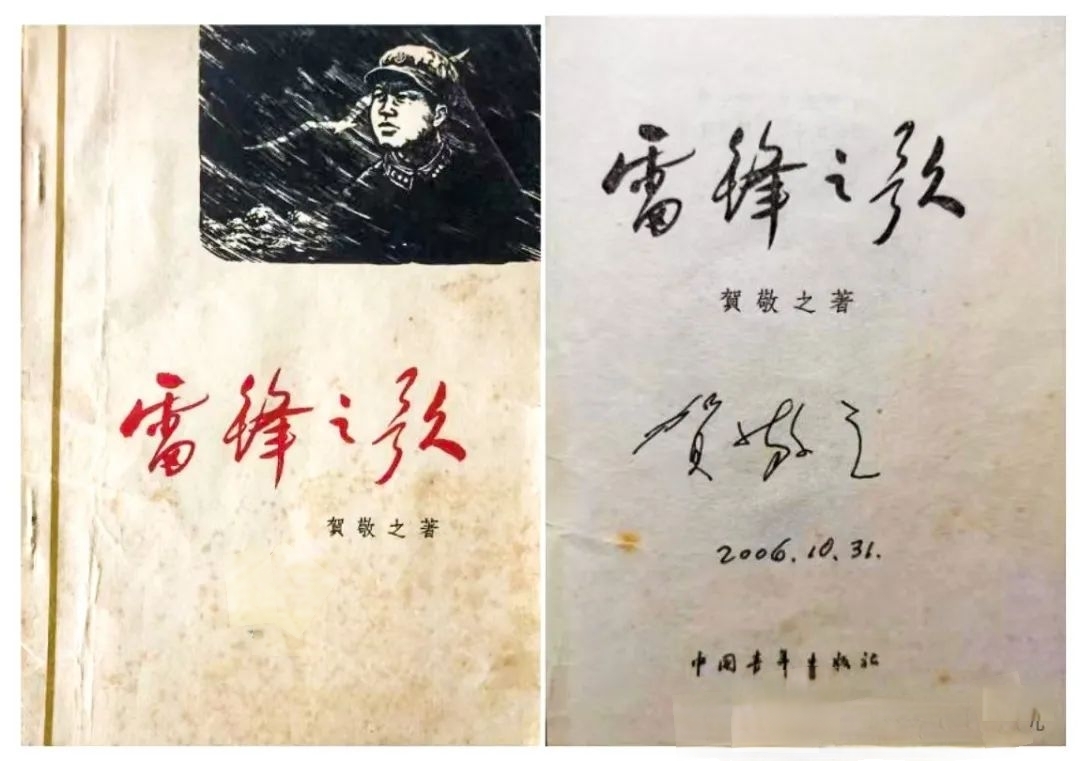 雷锋之歌
賀敬之著
雷锋之歌
賀敬之著
贺敬之
2006.10.31.
中国青年出版社